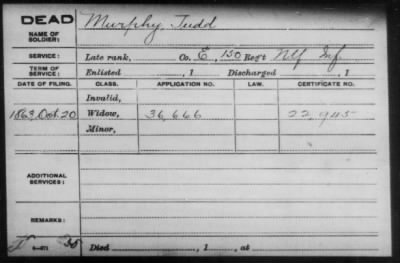 DEAD
NAME OF SOLDIER:
Murphy, Judd
SERVICE:
Late rank, Co. E, 150 Reg't Inf
TERM OF SERVICE:
Enlisted , 1 Discharged , 1
DATE OF FILING. CLASS. APPLICATION NO. LAW. CERTIFICATE NO.
Invalid,
1863, Oct. 20 Widow, 36,666 22,945
Minor,
ADDITIONAL SERVICES:
REMARKS:
Died , 1 , at